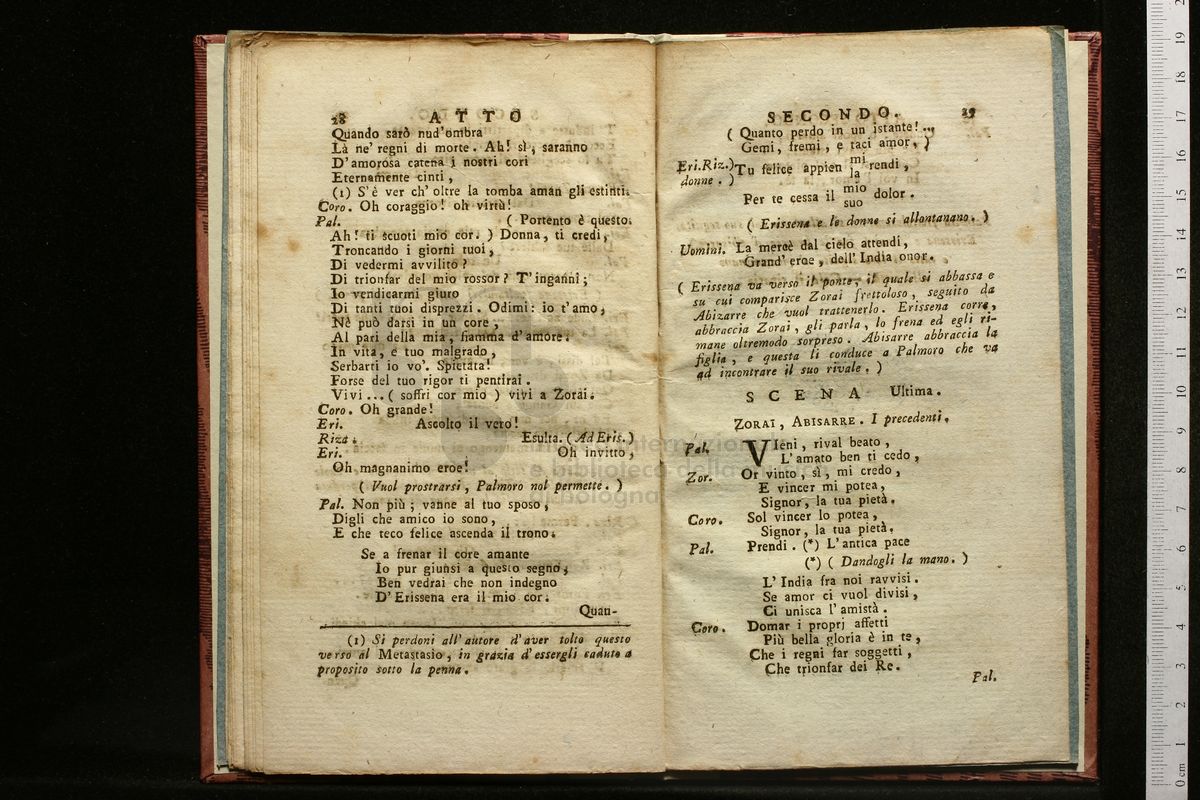 28 ATTO
Quando sarò nud'ombra
Là ne' regni di morte. Ah! sì, saranno
D'amorosa catena i nostri cori
Eternamente cinti,
(1) S'è ver ch'oltre la tomba aman gli estinti.
Coro. Oh coraggio! oh virtù!
Pal. ( Portento è questo.
Ah! ti scuoti mio cor. ) Donna, ti credi,
Troncando i giorni tuoi,
Di vedermi avvilito?
Di trionfar del mio rossor? T'inganni;
Io vendicarmi giuro
Di tanti tuoi disprezzi. Odimi: io t'amo,
Nè può darsi in un core,
Al pari della mia, fiamma d'amore.
In vita, e tuo malgrado,
Serbarti io vo'. Spietata!
Forse del tuo rigor ti pentirai.
Vivi... ( soffri cor mio ) vivi a Zorai.
Coro. Oh grande!
Eri. Ascolto il vero!
Riza. Esulta. (Ad Eris.)
Eri. Oh invitto,
Oh magnanimo eroe!
( Vuol prostrarsi, Palmoro nol permette. )
Pal. Non più; vanne al tuo sposo,
Digli che amico io sono,
E che teco felice ascenda il trono.
Se a frenar il core amante
Io pur giunsi a questo segno,
Ben vedrai che non indegno
D'Erissena era il mio cor.
Quan-
(1) Si perdoni all'autore d'aver tolto questo
verso al Metastasio, in grazia d'essergli caduto a
proposito sotto la penna.
SECONDO. 29
( Quanto perdo in un istante!...
Gemi, fremi, e taci amor, )
Eri.Riz.) Tu felice appien mi rendi,
donne. ) la
Per te cessa il mio dolor.
suo
( Erissena e le donne si allontanano. )
Uomini. La mercè dal cielo attendi,
Grand' eroe, dell'India onor.
( Erissena va verso il ponte, il quale si abbassa e
su cui comparisce Zorai frettoloso, seguito da
Abizarre che vuol trattenerlo. Erissena corre,
abbraccia Zorai, gli parla, lo frena ed egli ri-
mane oltremodo sorpreso. Abisarre abbraccia la
figlia, e questa li conduce a Palmoro che va
ad incontrare il suo rivale. )
SCENA Ultima.
ZORAI, ABISARRE. I precedenti.
Pal. VIeni, rival beato,
L'amato ben ti cedo,
Zor. Or vinto, sì, mi credo,
E vincer mi potea,
Signor, la tua pietà.
Coro. Sol vincer lo potea,
Signor, la tua pietà.
Pal. Prendi. (*) L'antica pace
(*) ( Dandogli la mano. )
L'India fra noi ravvisi.
Se amor ci vuol divisi,
Ci unisca l'amistà.
Coro. Domar i proprj affetti
Più bella gloria è in te,
Che i regni far soggetti,
Che trionfar dei Re.
Pal.